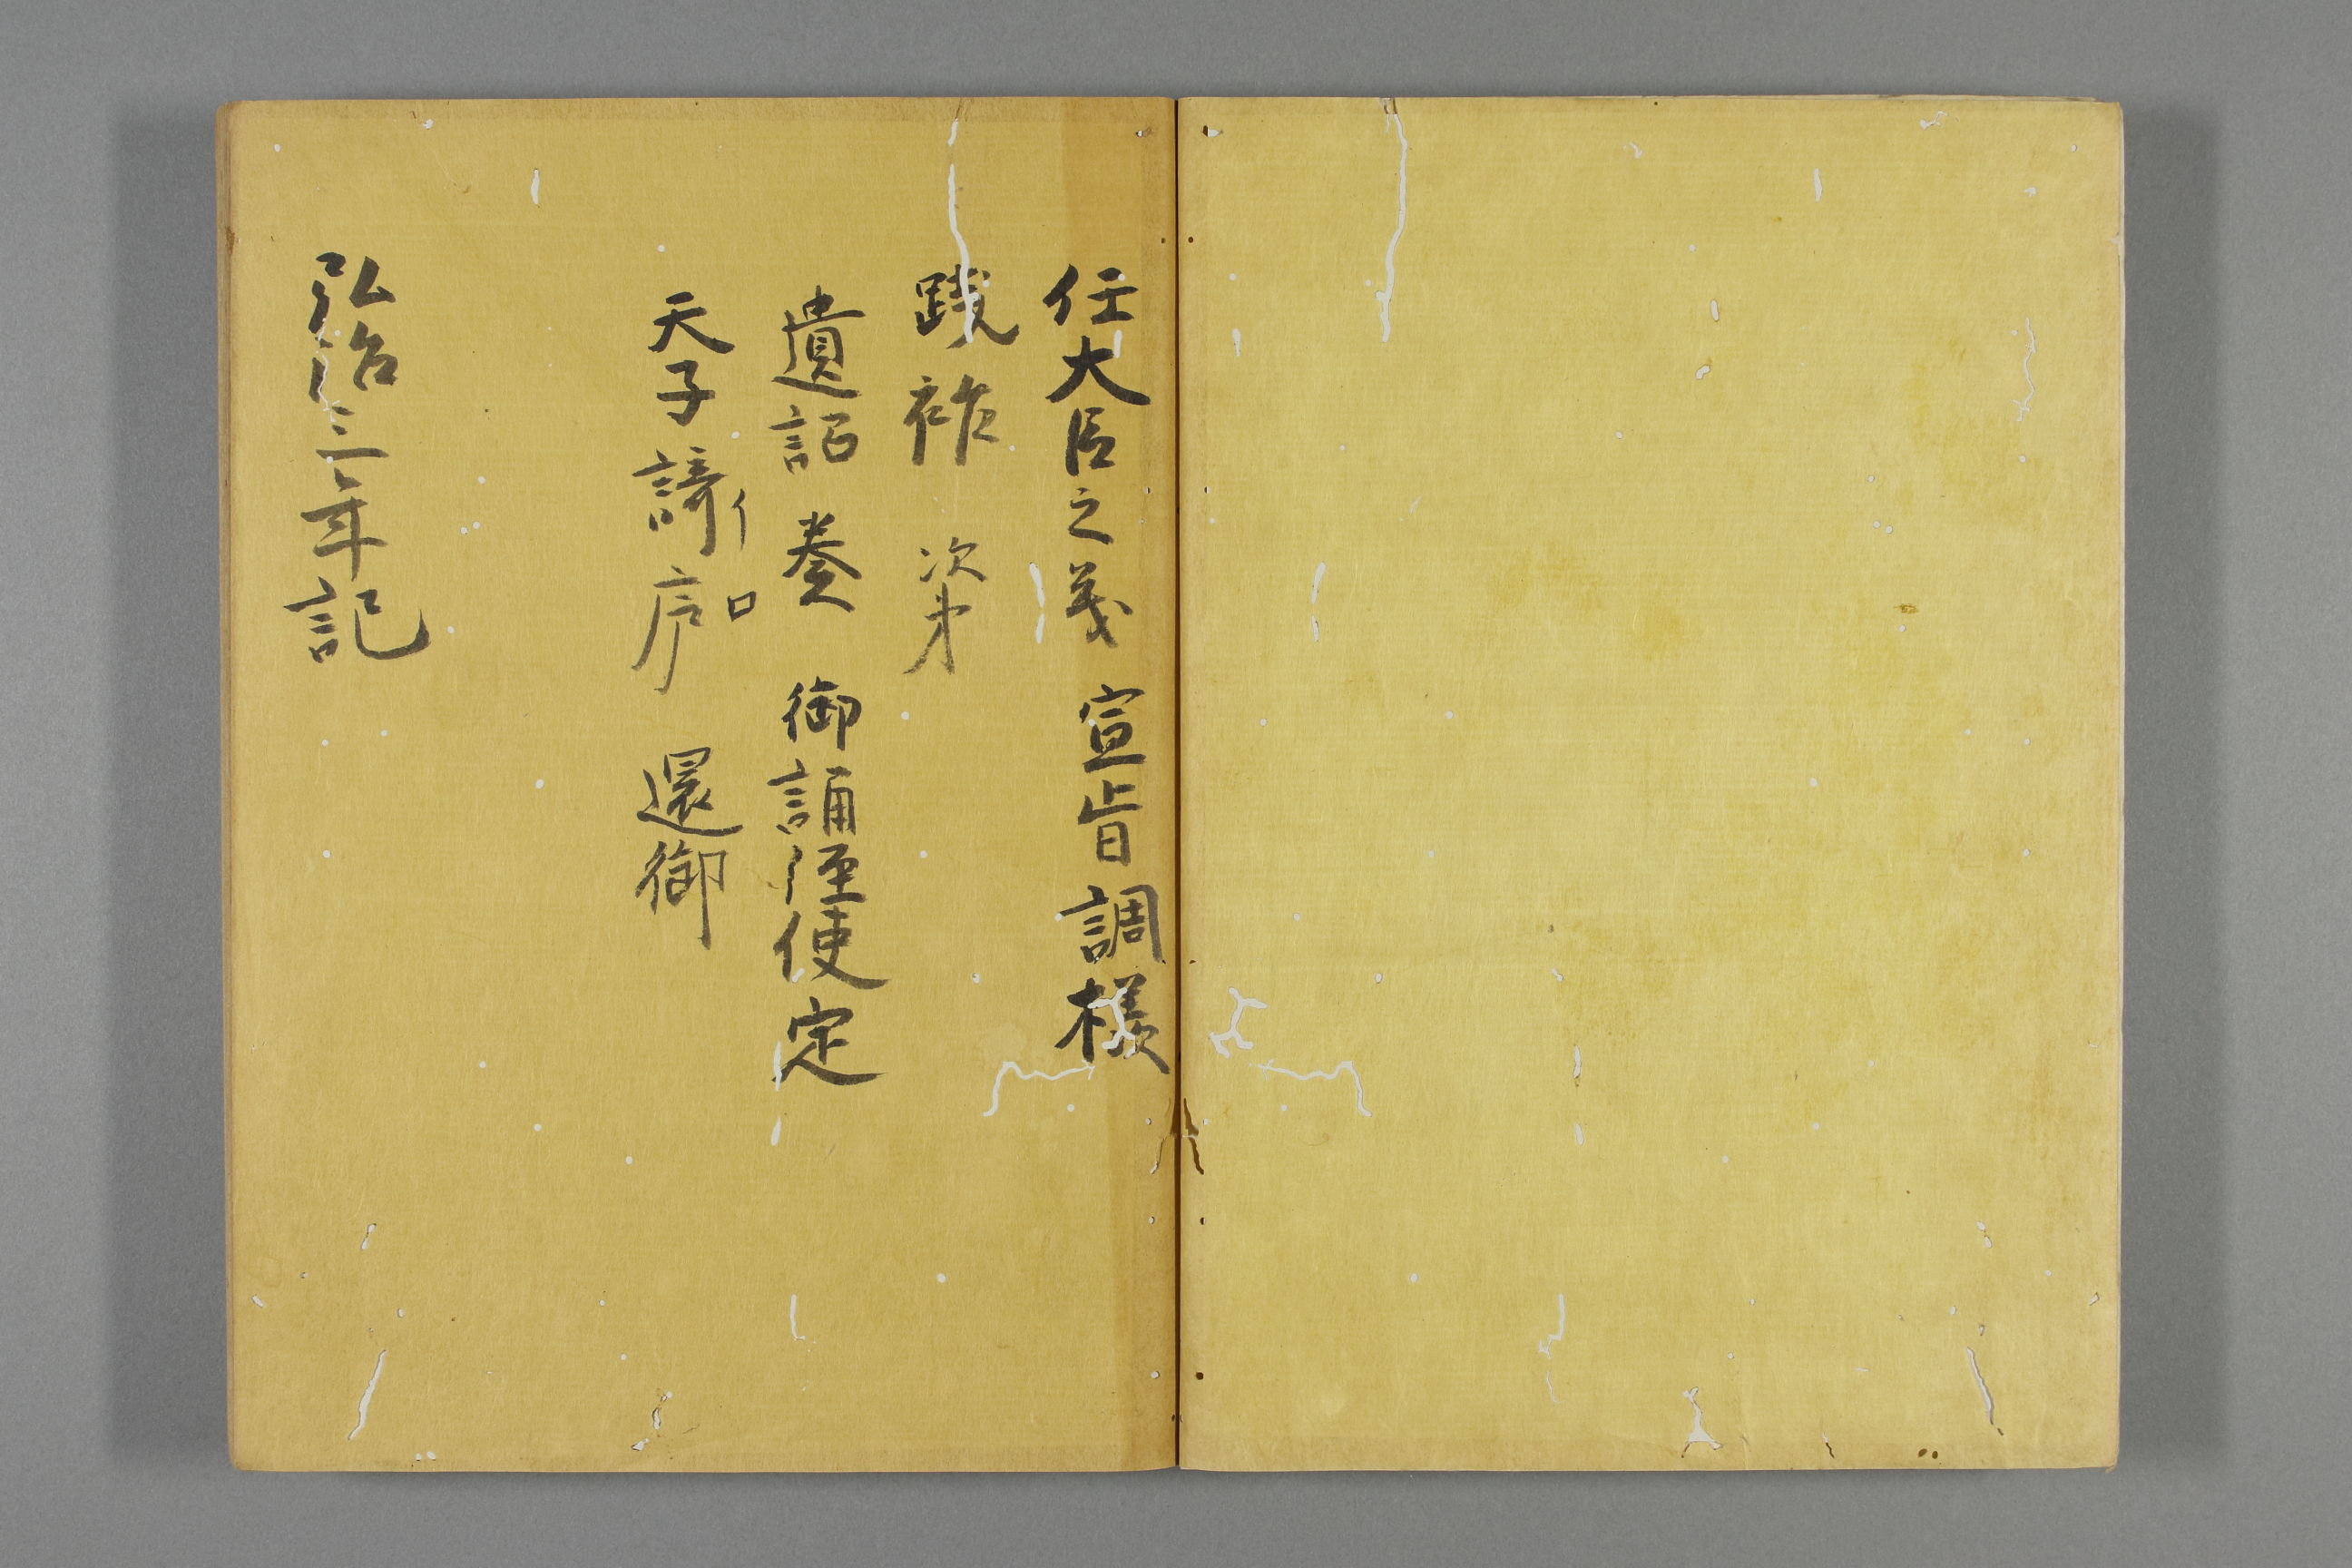 任大臣之義 宣旨調様
践祚 次第
遺詔 奏 御誦経使定
天子諒 還御
弘治三年記